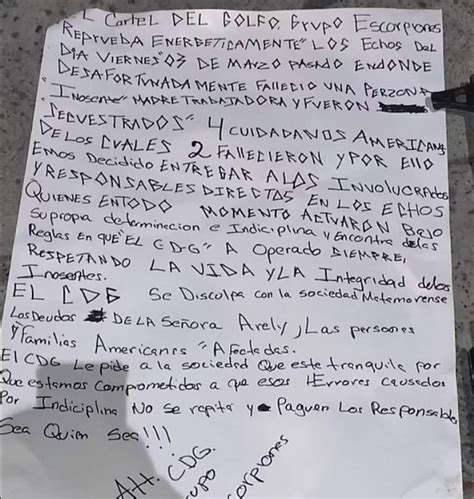 EL Cartel DEL GOLFO. Grupo Escorpiones
REPRUEBA ENERGETICAMENTE" LOS Echos Del
DIA VIERNES "03 DE MARZO PASADO ENDONDE
DESAFORTUNADAMENTE FALLECIO UNA PERZONA
"INOSENTE" MADRE TRABAJADORA Y FUERON
SECVESTRADOS" 4 CUIDADANOS AMERICANS
DE LOS CUALES 2 FALLECIERON Y POR ELLO
EMOS DECIDIDO ENTREGAR A LOS INVOLUCRADOS
Y RESPONSABLES DIRECTOS EN LOS ECHOS
QUIENES EN TODO MOMENTO ACTVARON BAJO
SU propa determinacion e Indiciplina y Encontra delas
Reglas En que "EL CDG" A Operado SIEMPRE,
RESPETANDO LA VIDA Y LA Integridad delos
Inosentes.
EL CDG Se Disculpa con la sociedad Matamorense
Los Deudos DE LA Señora Arely, Las persones
y Familias Americanes "Afectadas.
El CDG Le pide a la sociedad Que este tranquile por
Que estamos comprometidos a que esos Errores causados
Por Indiciplina No se repita y Paguen Los Responsables
Sea Quien Sea!!!
Att. CDG.
Grupo
Escorpiones